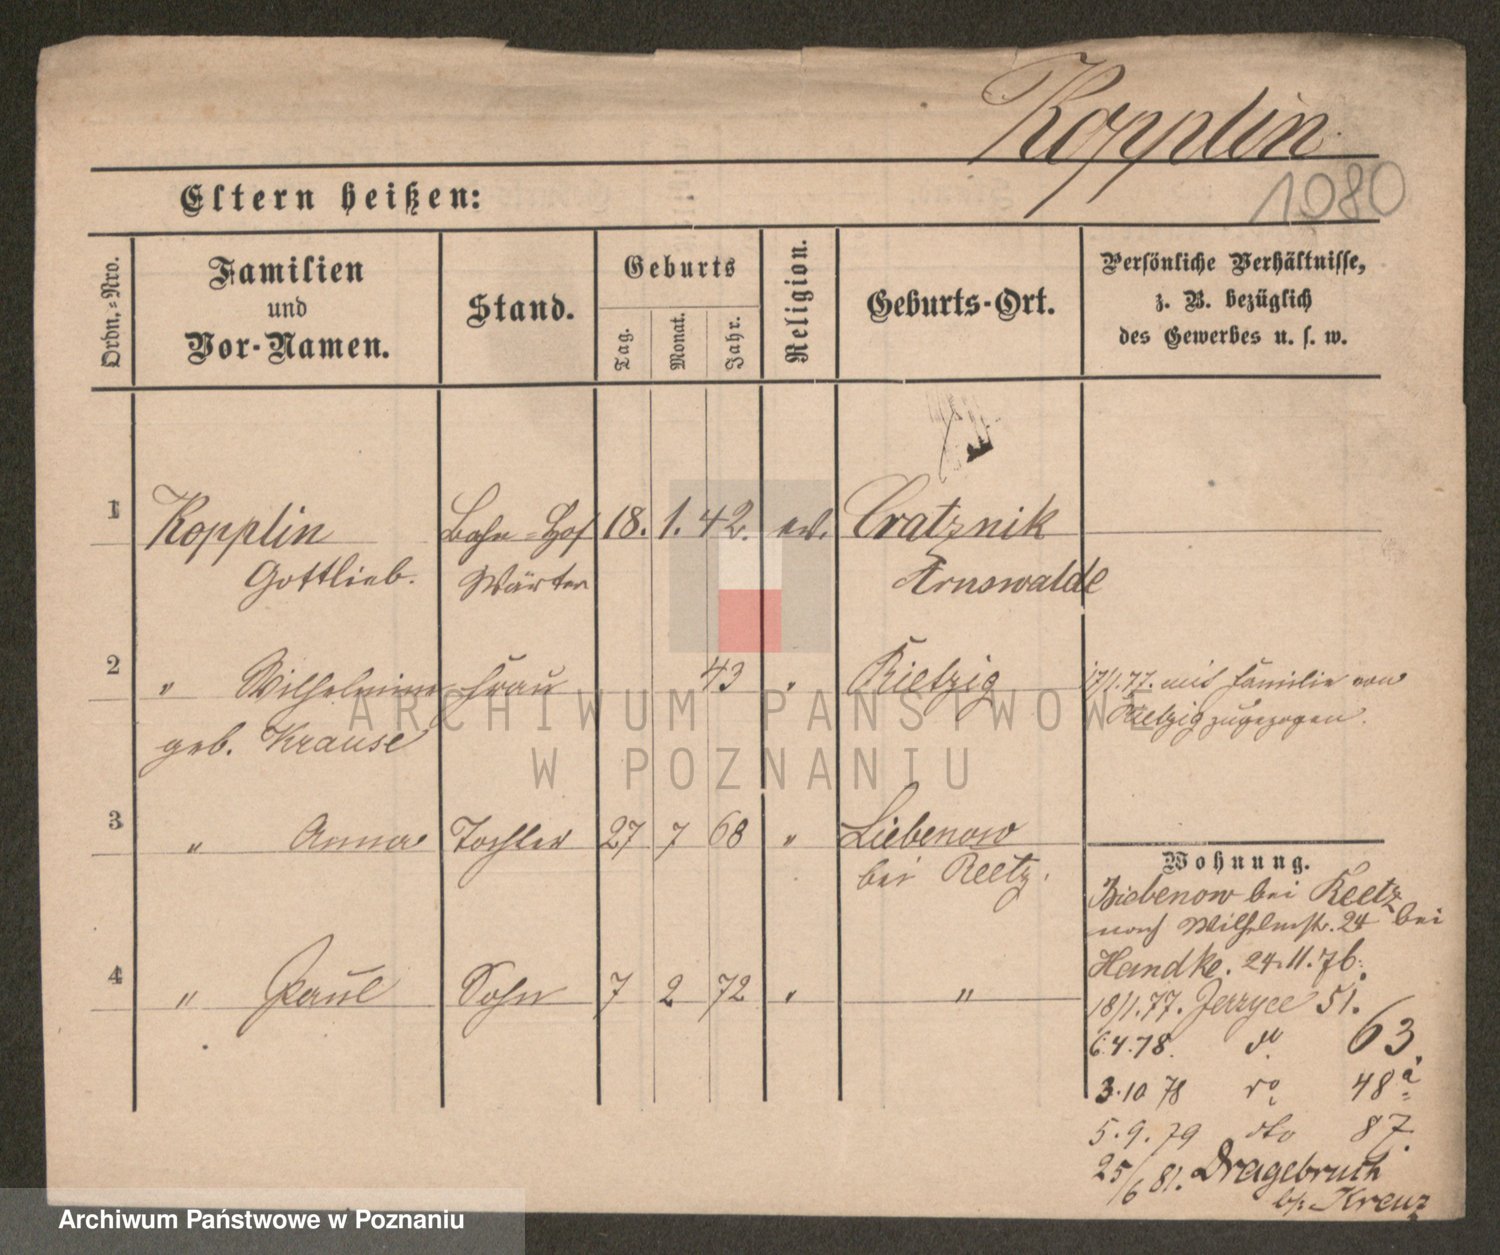 Kopplin
1080
Eltern heißen:
Ordn.-Nro.
Familien
und
Vor-Namen.
Stand.
Geburts
Tag.
Monat.
Jahr.
Religion.
Geburts-Ort.
Persönliche Verhältnisse,
z. B. bezüglich
des Gewerbes u. s. w.
1 Kopplin Bahn-Hof 18. 1. 42. ev. Cratznik
Gottlieb. Wärter Arnswalde
2 " Wilhelmine Frau 43 " Rietzig 17/1.77. mit Familie von
geb. Krause Rietzig zugezogen.
3 " Anna Tochter 27 7 68 " Liebenow
bei Reetz.
4 " Paul Sohn 7 2 72 " "
Wohnung.
Liebenow bei Reetz
nach Wilhelmstr. 24 bei
Handke. 24.11.76.
18/1.77. Jerzyce 51.
6.4.78. do 63.
3.10 78 do 48a
5.9.79 dto 87.
25/6 81. Dragebruch
b/ Kreuz
ARCHIWUM PAŃSTWOWE
W POZNANIU
Archiwum Państwowe w Poznaniu